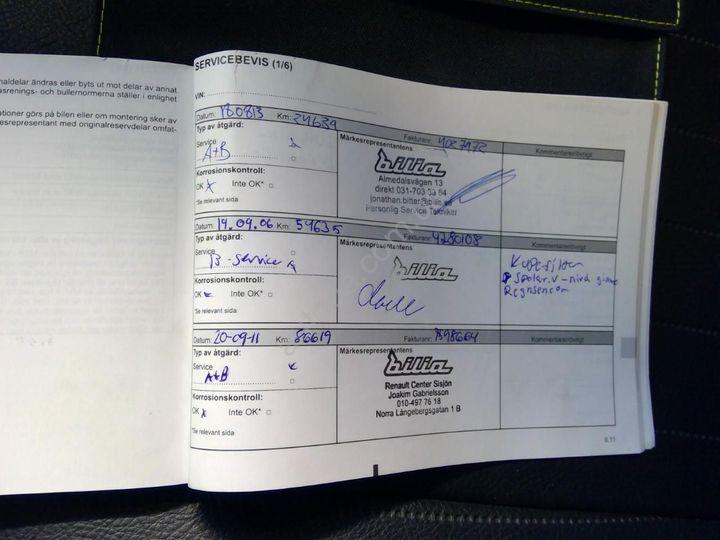 naldelar ändras eller byts ut mot delar av annat
asrenings- och bullernormerna ställer i enlighet
ationer görs på bilen eller om montering sker av
esrepresentant med originalreservdelar omfat-
SERVICEBEVIS (1/6)
VIN:
Datum: 180813 Km: 24639
Fakturanr: 4087972
Typ av åtgärd:
Märkesrepresentantens
Kommentarer/övrigt
Service
A+B
bilia
Almedalsvägen 13
direkt 031-703 53 54
jonathan.bitter@bilia.se
Personlig Service Tekniker
Korrosionskontroll:
OK x Inte OK*
*Se relevant sida
Datum: 19.09.06 Km: 54635
Fakturanr: 4280108
Typ av åtgärd:
Märkesrepresentantens
Kommentarer/övrigt
Service
B-service
bilia
Kupefilter
Spolar.v
Regnsensor
Korrosionskontroll:
OK Inte OK*
*Se relevant sida
Datum: 20-09-11 Km: 86619
Fakturanr:
Typ av åtgärd:
Märkesrepresentantens
Kommentarer/övrigt
Service
A+B
bilia
Renault Center Sisjön
Joakim Gabrielsson
010-497 76 18
Norra Långebergsgatan 1 B
Korrosionskontroll:
OK x Inte OK*
*Se relevant sida
6.11